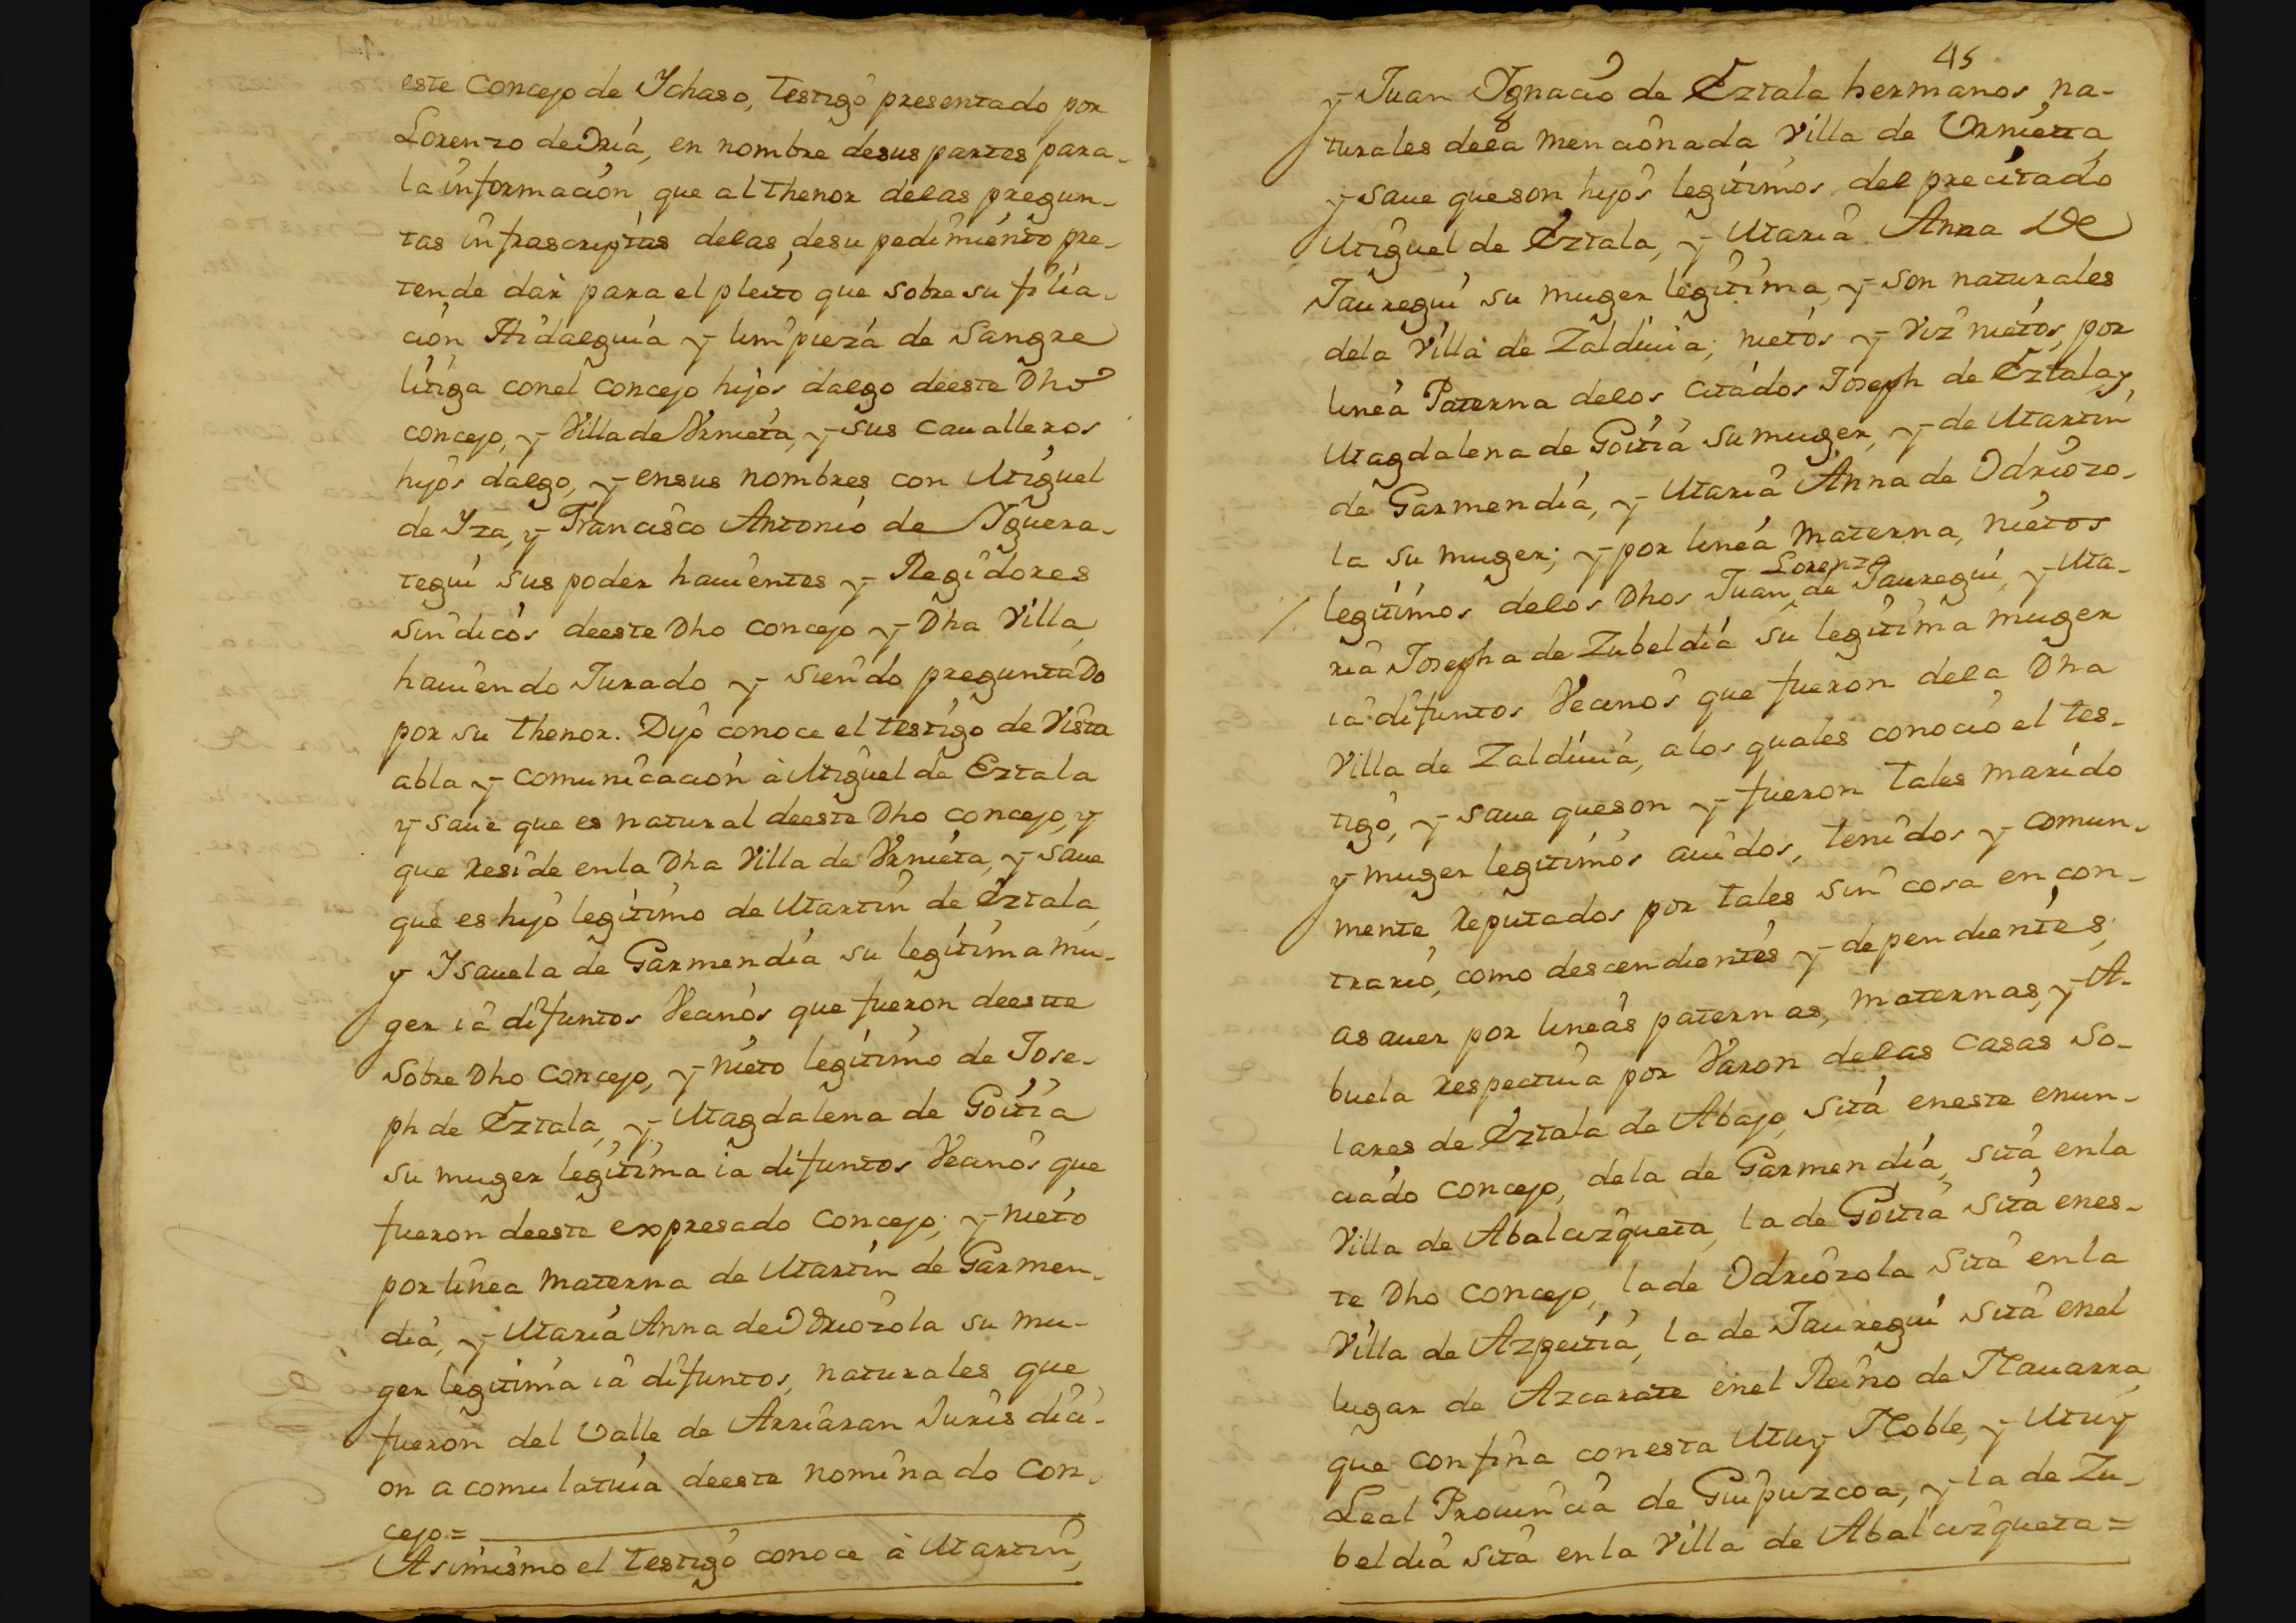 este Concejo de Ychaso, testigo presentado por
Lorenzo de Oria, en nombre de sus partes para
la informacion que al thenor de las pregun-
tas infrascriptas de las de su pedimiento pre-
tende dar para el pleito que sobre su filia-
cion Hidalguia y limpieza de Sangre
litiga con el concejo hijos dalgo de este Dho
concejo, y Villa de Vrnieta, y sus Caualleros
hijos dalgo, y en sus nombres con Miguel
de Yza, y Francisco Antonio de Yguera-
tegui sus poder hauientes y Regidores
Sindicos de este Dho concejo y Dha Villa,
hauiendo Jurado y siendo preguntado
por su thenor. Dijo conoce el testigo de Vista
abla y comunicacion à Miguel de Eztala
y saue que es natural de este Dho concejo, y
que Reside en la Dha Villa de Vrnieta, y saue
que es hijo legitimo de Martin de Eztala
y Ysauela de Garmendia su legitima mu-
ger ia difuntos Vecinos que fueron de este
sobre Dho concejo, y nieto legitimo de Jose-
ph de Eztala, y Magdalena de Goitia
su muger legitima ia difuntos Vecinos que
fueron de este expresado concejo; y nieto
por linea materna de Martin de Garmen-
dia, y Maria Anna de Odriozola su mu-
ger legitima ia difuntos, naturales que
fueron del Valle de Arriaran Jurisdici-
on acomulatiuia de este nominado con-
cejo =
Asimismo el testigo conoce à Martin,
45
y Juan Ygnacio de Eztala hermanos na-
turales de la mencionada Villa de Vrnieta,
y saue que son hijos legitimos del precitado
Miguel de Eztala, y Maria Anna de
Jauregui su muger legitima, y son naturales
de la Villa de Zaldiuia; nietos y Viznietos, por
linea Paterna de los citados Joseph de Eztala, y
Magdalena de Goitia su muger, y de Martin
de Garmendia, y Maria Anna de Odriozo-
la su muger; y por linea materna, nietos
Lorenzo
legitimos de los Dhos Juan de Jauregui, y Ma-
ria Josepha de Zubeldia su legitima muger
ia difuntos Vecinos que fueron de la Dha
Villa de Zaldiuia, a los quales conocio el tes-
tigo, y saue que son y fueron tales marido
y muger legitimos auidos, tenidos y comun-
mente Reputados por tales sin cosa en con-
trario, como descendientes y dependientes,
asauer por lineas paternas, maternas, y A-
buela respectiua por Varon de las casas so-
lares de Eztala de Abajo, sita en este enun-
ciado concejo, de la de Garmendia, sita en la
Villa de Abalcizqueta, la de Goitia sita en es-
te Dho concejo, la de Odriozola sita en la
Villa de Azpeitia, la de Jauregui sita en el
lugar de Azcarate en el Reino de Nauarra
que confina con esta Muy Noble, y Muy
Leal Prouincia de Guipuzcoa, y la de Zu-
beldia sita en la Villa de Abalcizqueta =